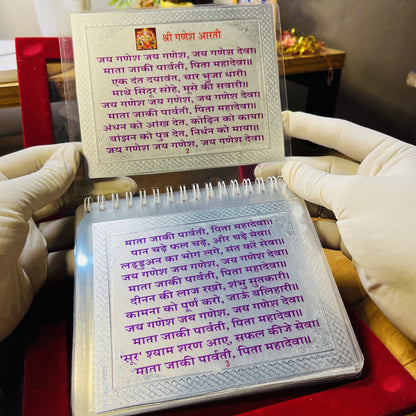 श्री गणेश आरती
जय गणेश जय गणेश, जय गणेश देवा।
माता जाकी पार्वती, पिता महादेवा॥
एक दंत दयावंत, चार भुजा धारी।
माथे सिंदूर सोहे, मूसे की सवारी॥
जय गणेश जय गणेश, जय गणेश देवा।
माता जाकी पार्वती, पिता महादेवा॥
अंधन को आंख देत, कोढ़िन को काया।
बांझन को पुत्र देत, निर्धन को माया॥
जय गणेश जय गणेश, जय गणेश देवा।
2
माता जाकी पार्वती, पिता महादेवा॥
पान चढ़े फल चढ़े, और चढ़े मेवा।
लड्डुअन का भोग लगे, संत करे सेवा॥
जय गणेश जय गणेश, जय गणेश देवा।
माता जाकी पार्वती, पिता महादेवा॥
दीनन की लाज रखो, शंभु सुतकारी।
कामना को पूर्ण करो, जाऊँ बलिहारी॥
जय गणेश जय गणेश, जय गणेश देवा।
माता जाकी पार्वती, पिता महादेवा॥
'सूर' श्याम शरण आए, सफल कीजे सेवा।
माता जाकी पार्वती, पिता महादेवा॥
3